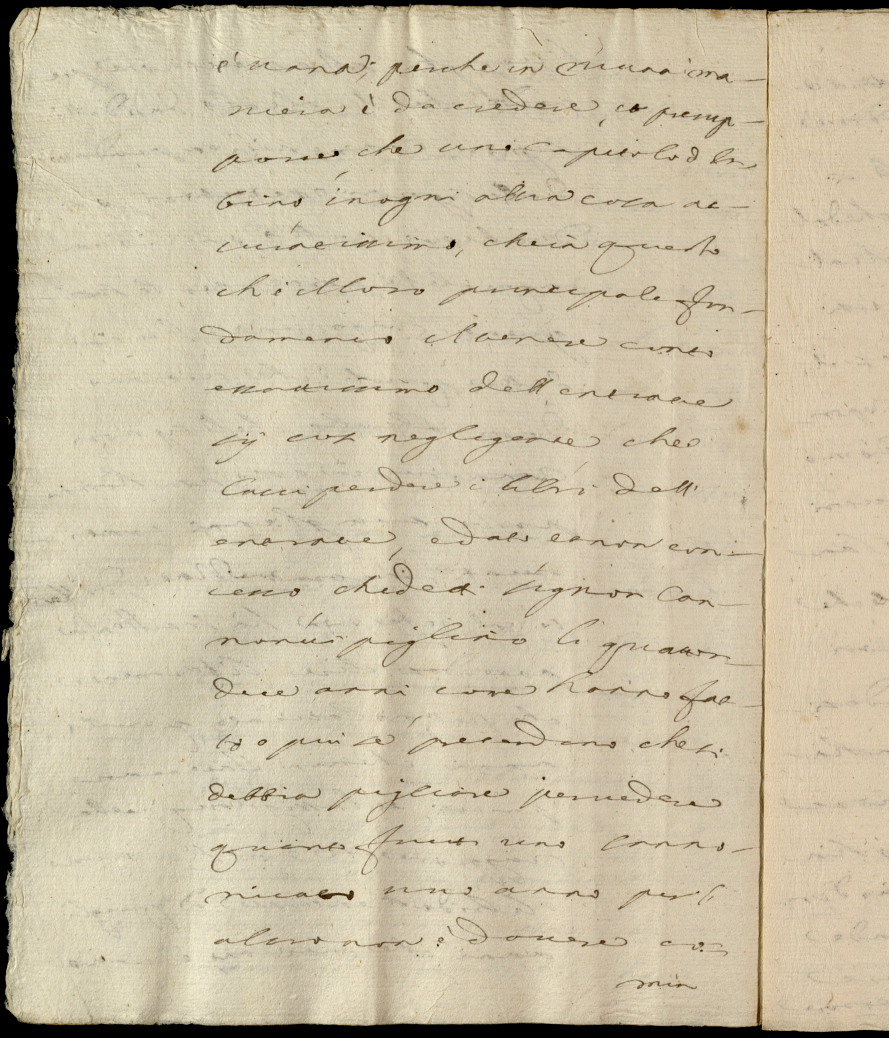 è vana; perche in niuna ma-
niera è da credere, o presup-
porre, che uno Capitolo d'Ur
bino in ogni altra cosa ac-
curatissimo, che in questo
ch'è il loro principale fon-
damento il tenere conto
esattissimo dell'entrate
sij così negligente che
lassi perdere i libri dell'
entrate, e dato e non con-
cesso che detti Signori Can-
nonici piglino li quattor-
deci anni come hanno fat-
to o più se pretendino che si
debbia pigliare per vedere
quanto frutti uno Canno-
nicato uno anno per l'
altro non è dovere co-
min